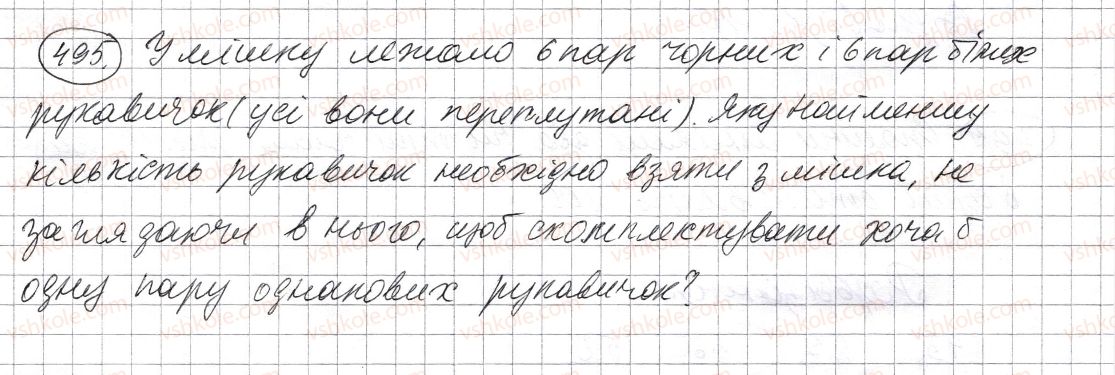 495. У мішку лежало 6 пар чорних і 6 пар білих
рукавичок (усі вони переплутані). Яку найменшу
кількість рукавичок необхідно взяти з мішка, не
заглядаючи в нього, щоб скомплектувати хоча б
одну пару однакових рукавичок?